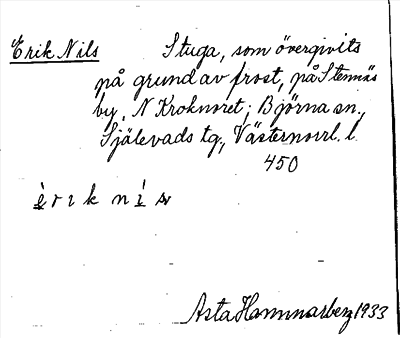 Erik Nils Stuga, som övergivits
på grund av frost, på Stennäs
by, N Kroknoret; Björna sn.,
Själevads tg., Västernorrl. l.
450
è r ı k n í s
Asta Hammarberg 1933